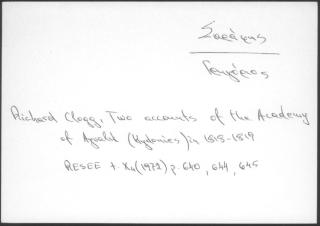 Σαράφης
Γρηγόριος
Richard Clogg, Two accounts of the Academy
of Ayvalik (Kydonies) in 1818-1819
RESEE t. X4 (1972) p. 640, 644, 645